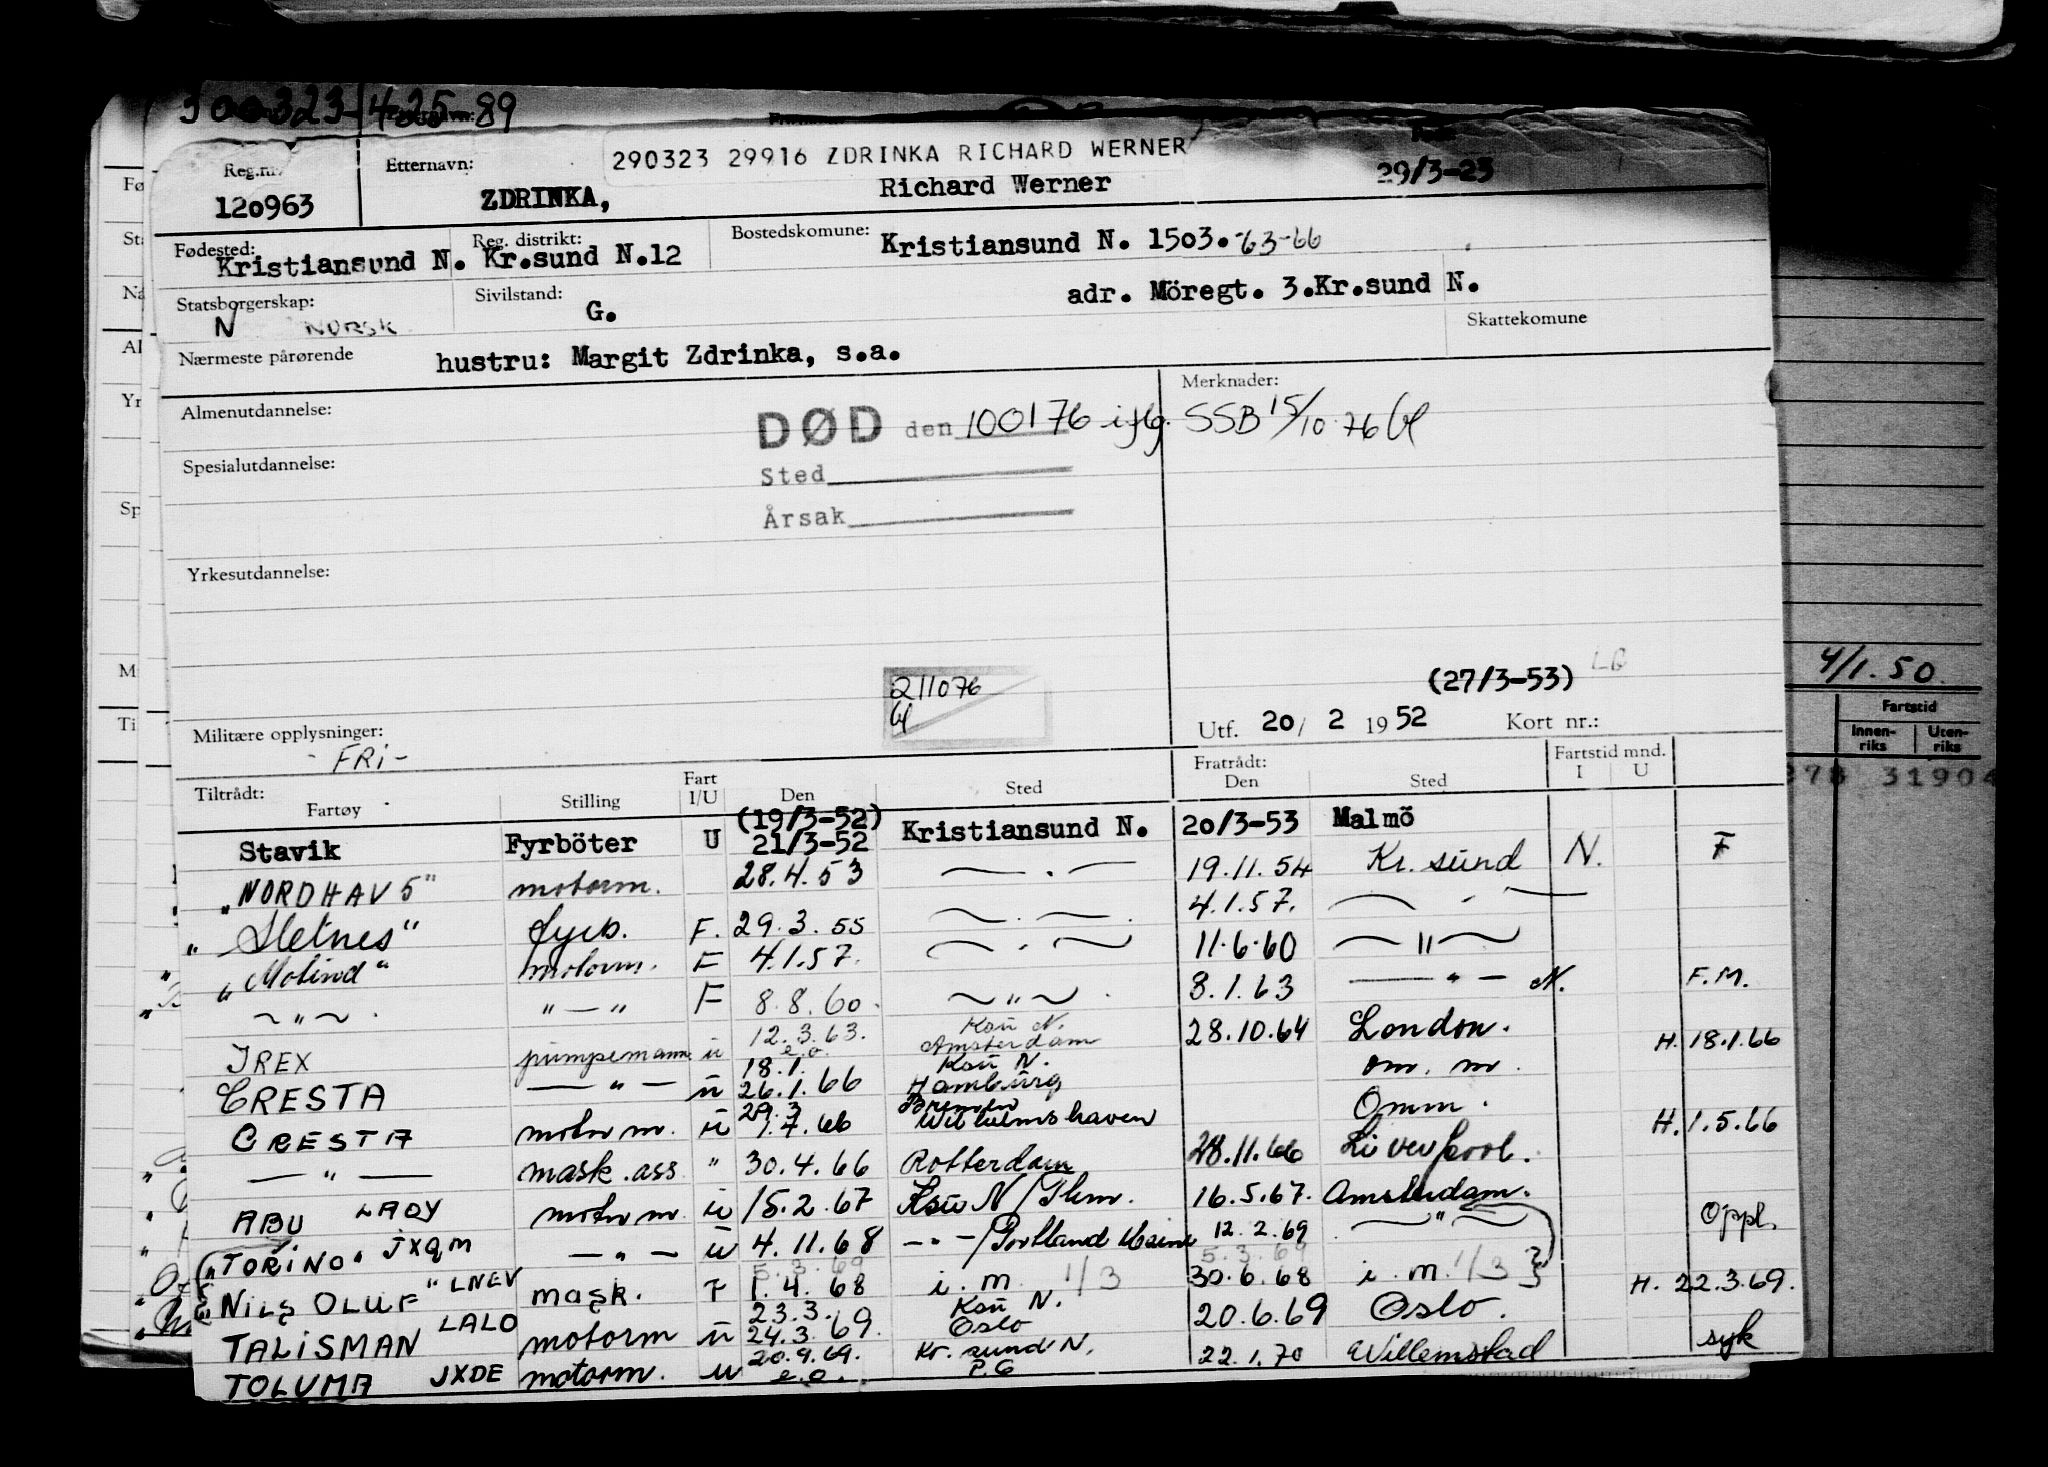 300323 42589
290323 29916 ZDRINKA RICHARD WERNER
Reg.nr. Etternavn: 29/3-23
120963 ZDRINKA, Richard Werner
Fødested: Reg. distrikt: Bostedskomune:
Kristiansund N. Kr.sund N.12 Kristiansund N. 1503.-63-66
Statsborgerskap: Sivilstand: adr. Möregt. 3.Kr.sund N.
N NORSK G. Skattekomune
Nærmeste pårørende hustru: Margit Zdrinka, s.a.
Almenutdannelse: Merknader:
DØD den 100176 iflg. SSB 15/10 76
Spesialutdannelse: Sted
Årsak
Yrkesutdannelse:
211076 (27/3-53)
4/1.50
Militære opplysninger: Utf. 20/ 2 1952 Kort nr.:
-FRi-
Fartstid
Innen-riks Uten-riks
31904
Tiltrådt: Fratrådt: Fartstid mnd.
Fartøy Stilling Fart I/U Den Sted Den Sted I U
(19/3-52)
Stavik Fyrböter U 21/3-52 Kristiansund N. 20/3-53 Malmö
"NORDHAV 5" motorm. 28.4.53 — . — 19.11.54 Kr. sund N. F
"Sletnes" fyrb. F. 29.3.55 — . — 4.1.57. — . —
"Molind" motorm. F 4.1.57. — . — 11.6.60 — " —
— " — " — " F 8.8.60. — " — 8.1.63 — " — N. F.M.
IREX pumpemann u 12.3.63. e.o. Ksu N. Amsterdam 28.10.64 London. H. 18.1.66
CRESTA — " — u 18.1. 26.1.66 Ksu N. Hamburg om. m.
CRESTA motorm. u 29.3 1.4.66 Bremen Wilhelmshaven Omm. H. 1.5.66
— " — mask.ass " 30.4.66 Rotterdam 28.11.66 Liverpool.
ABU LAQY motorm u 15.2.67 Ksu N/ 16.5.67. Amsterdam.
"TORINO" JXQM — " — u 4.11.68 — " —/Portland Maine 12.2.69 — " — Oppl.
NILS OLUF" LNEV mask. F 5.3.69 1.4.68 i.m. 1/3 5.3.69 30.6.68 i.m. 1/3 H. 22.3.69.
TALISMAN LALO motorm u 23.3. 24.3.69. Ksu N. Oslo 20.6.69 Oslo.
TOLUMA JXDE motorm. u 20.9.69. e.o. Kr. sund N. P.G 22.1.70 Willemstad syk